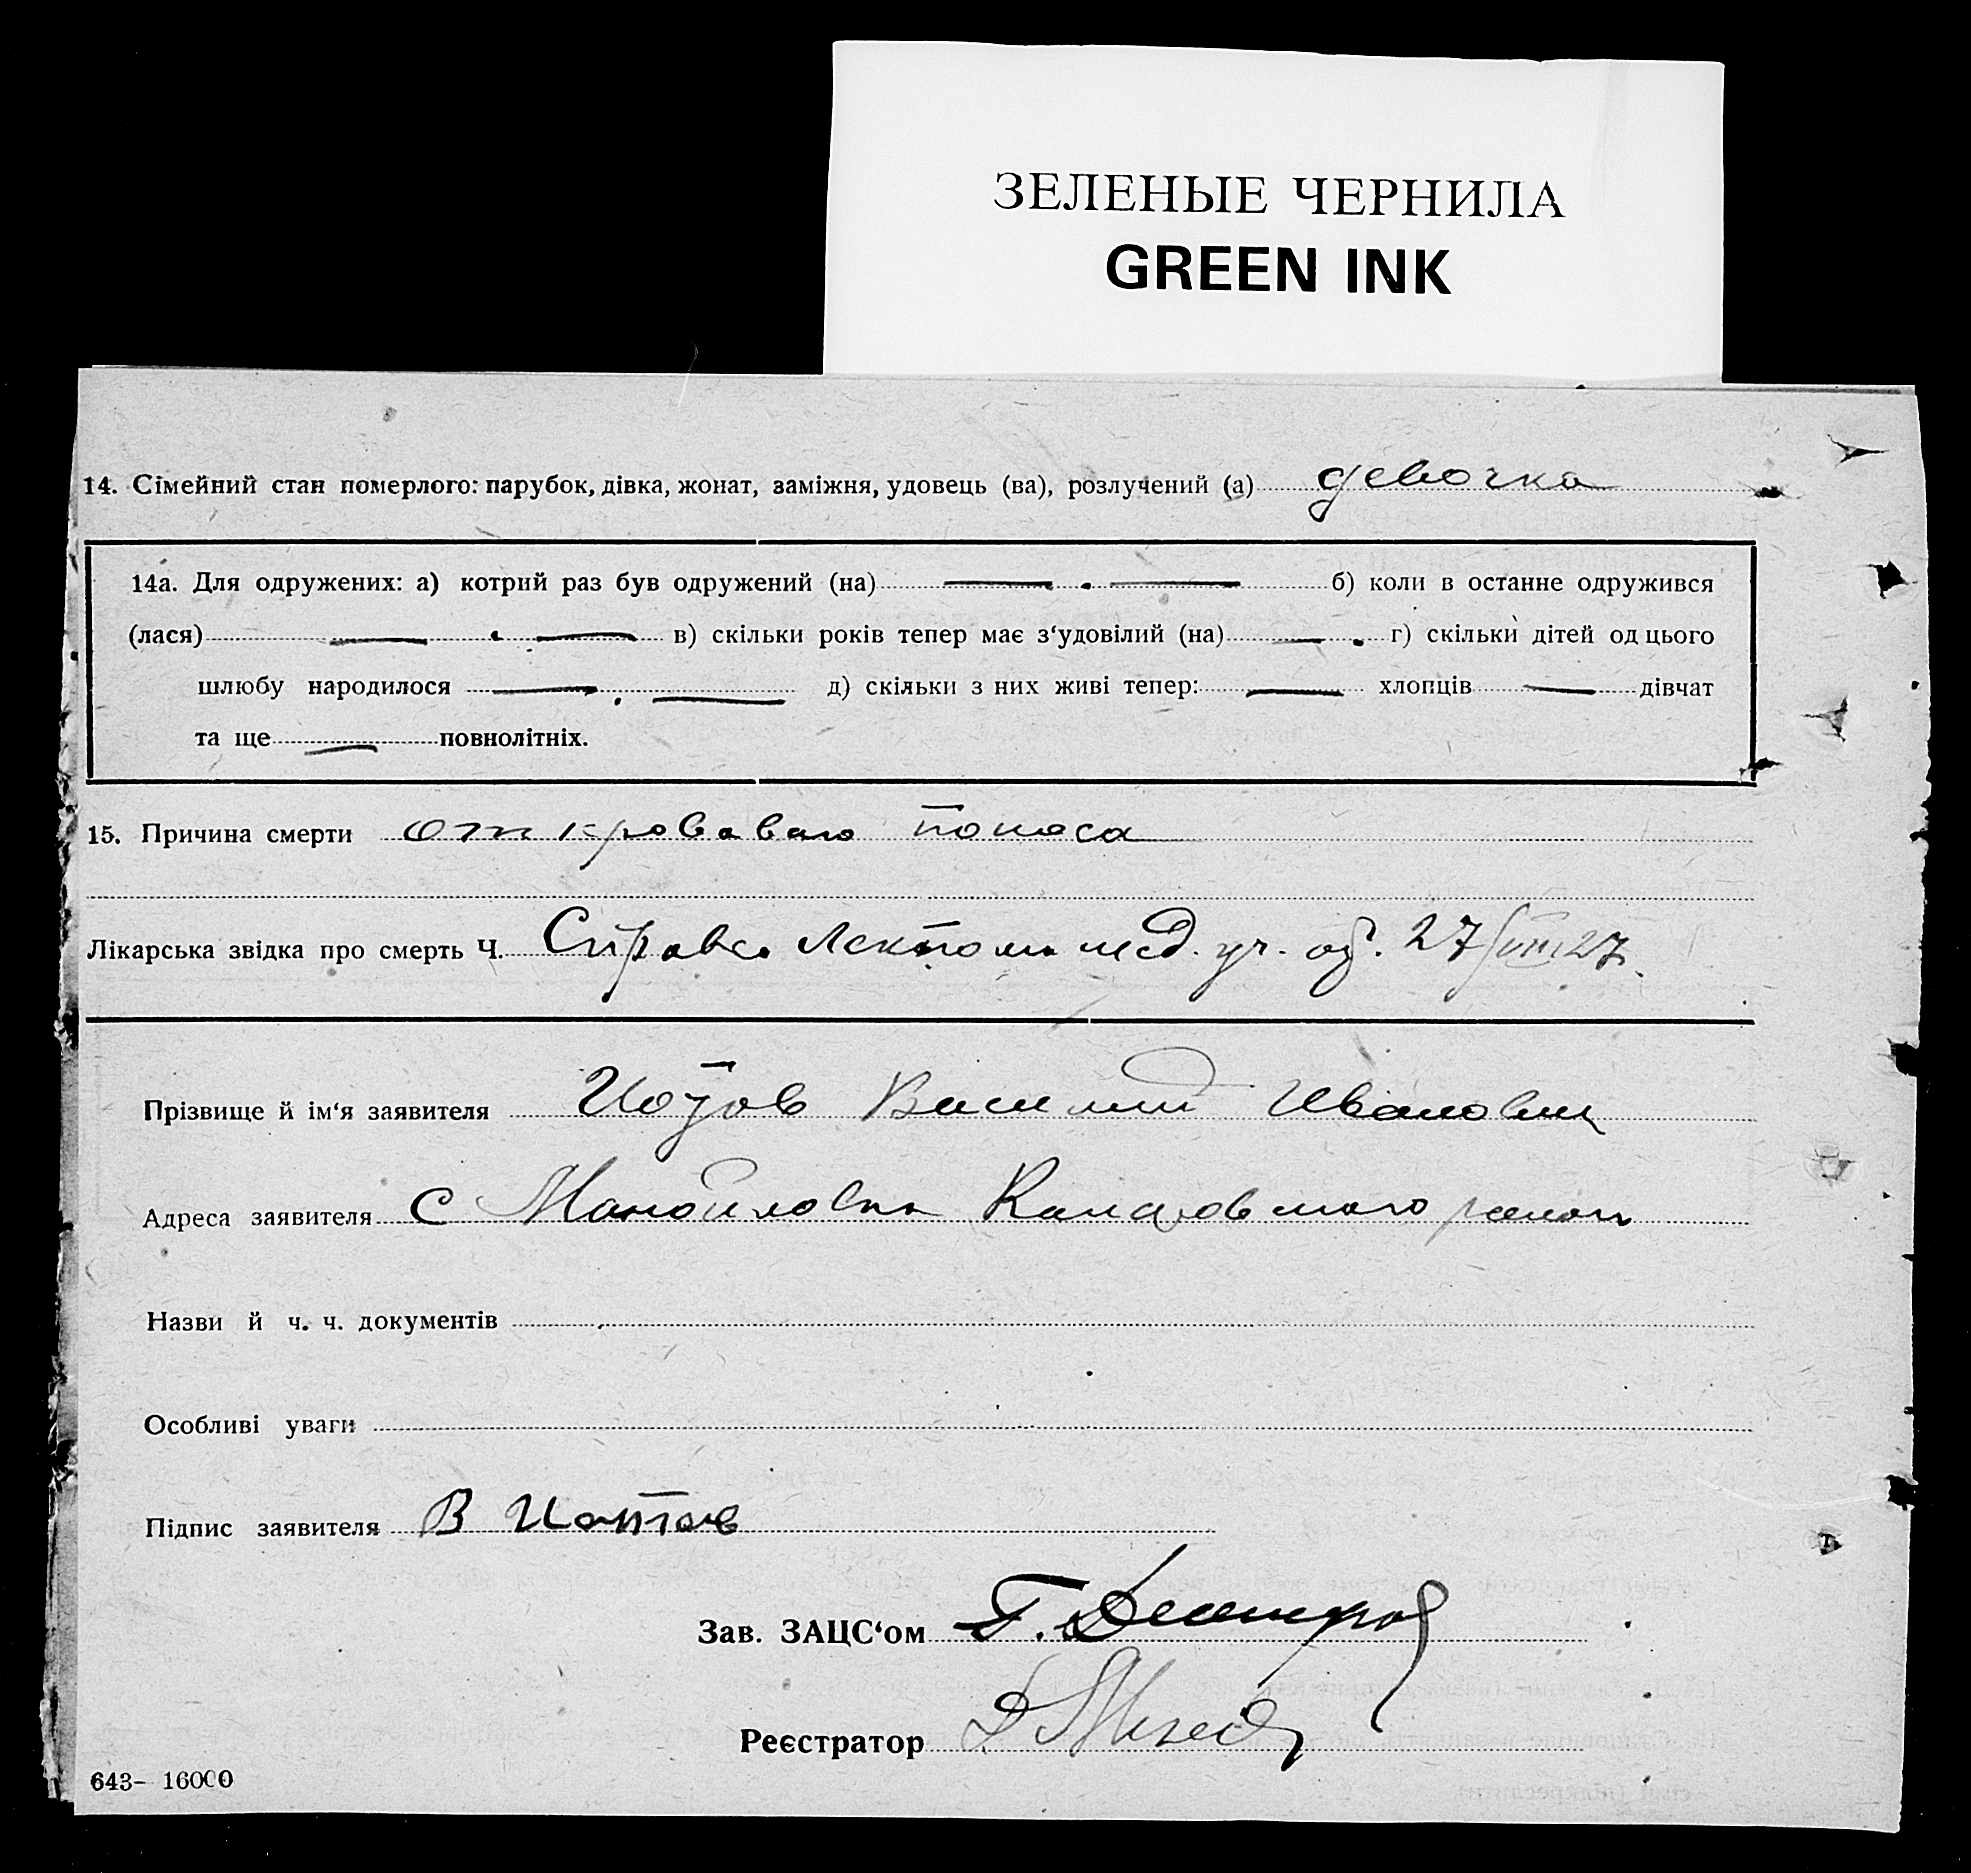 ЗЕЛЕНЫЕ ЧЕРНИЛА
GREEN INK
14. Сімейний стан померлого: парубок, дівка, жонат, заміжня, удовець (ва), розлучений (а) девочка
14а. Для одружених: а) котрий раз був одружений (на) — . — б) коли в останнє одружився
(лася) — . — в) скільки років тепер має з‘удовілий (на) — . г) скільки дітей од цього
шлюбу народилося — . — д) скільки з них живі тепер: — хлопців — дівчат
та ще — повнолітніх.
15. Причина смерти от кроваваго поноса
Лікарська звідка про смерть Ч. мед. уч. от. 27/VIII 27.
Прізвище й ім‘я заявителя Василий Иванович
Адреса заявителя с Манойловка района
Назви й ч. ч. документів
Особливі уваги
Підпис заявителя В
Зав. ЗАЦС‘ом
Реєстратор
643– 16000